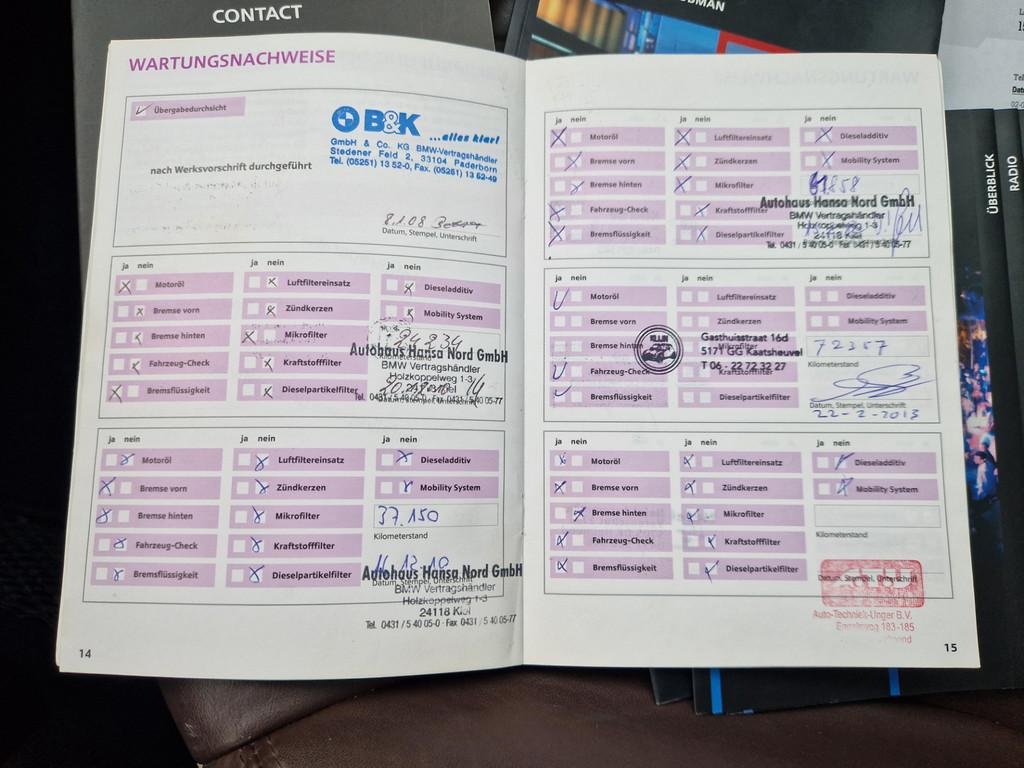 CONTACT
WARTUNGSNACHWEISE
Übergabedurchsicht
B&K
...alles klar!
GmbH & Co. KG BMW-Vertragshändler
Stedener Feld 2, 33104 Paderborn
Tel. (05251) 13 52-0, Fax. (05251) 13 52-49
nach Werksvorschrift durchgeführt
8.1.08
Datum, Stempel, Unterschrift
ja nein
ja nein
ja nein
Motoröl
Luftfiltereinsatz
Dieseladditiv
Bremse vorn
Zündkerzen
Mobility System
Bremse hinten
Mikrofilter
Fahrzeug-Check
Kraftstofffilter
Bremsflüssigkeit
Dieselpartikelfilter
Kilometerstand
Autohaus Hansa Nord GmbH
BMW Vertragshändler
Holzkoppelweg 1-3
Tel. 0431 / 5 40 05-0 · Fax 0431 / 5 40 05-77
ja nein
ja nein
ja nein
Motoröl
Luftfiltereinsatz
Dieseladditiv
Bremse vorn
Zündkerzen
Mobility System
Bremse hinten
Mikrofilter
37.150
Kilometerstand
Fahrzeug-Check
Kraftstofffilter
Bremsflüssigkeit
Dieselpartikelfilter
16.12.10
Datum, Stempel, Unterschrift
Autohaus Hansa Nord GmbH
BMW Vertragshändler
Holzkoppelweg 1-3
24118 Kiel
Tel. 0431 / 5 40 05-0 · Fax 0431 / 5 40 05-77
14
ja nein
ja nein
ja nein
Motoröl
Luftfiltereinsatz
Dieseladditiv
Bremse vorn
Zündkerzen
Mobility System
Bremse hinten
Mikrofilter
61858
Fahrzeug-Check
Kraftstofffilter
Bremsflüssigkeit
Dieselpartikelfilter
Autohaus Hansa Nord GmbH
BMW Vertragshändler
Holzkoppelweg 1-3
24118 Kiel
Tel. 0431 / 5 40 05-0 · Fax 0431 / 5 40 05-77
ja nein
ja nein
ja nein
Motoröl
Luftfiltereinsatz
Dieseladditiv
Bremse vorn
Zündkerzen
Mobility System
Bremse hinten
Mikrofilter
72357
Kilometerstand
Gasthuisstraat 16d
5171 GG Kaatsheuvel
T 06 - 22 72 32 27
Fahrzeug-Check
Kraftstofffilter
Bremsflüssigkeit
Dieselpartikelfilter
Datum, Stempel, Unterschrift
22-2-2013
ja nein
ja nein
ja nein
Motoröl
Luftfiltereinsatz
Dieseladditiv
Bremse vorn
Zündkerzen
Mobility System
Bremse hinten
Mikrofilter
Kilometerstand
Fahrzeug-Check
Kraftstofffilter
Bremsflüssigkeit
Dieselpartikelfilter
Datum, Stempel, Unterschrift
Auto-Techniek-Unger B.V.
183-185
15
ÜBERBLICK
RADIO